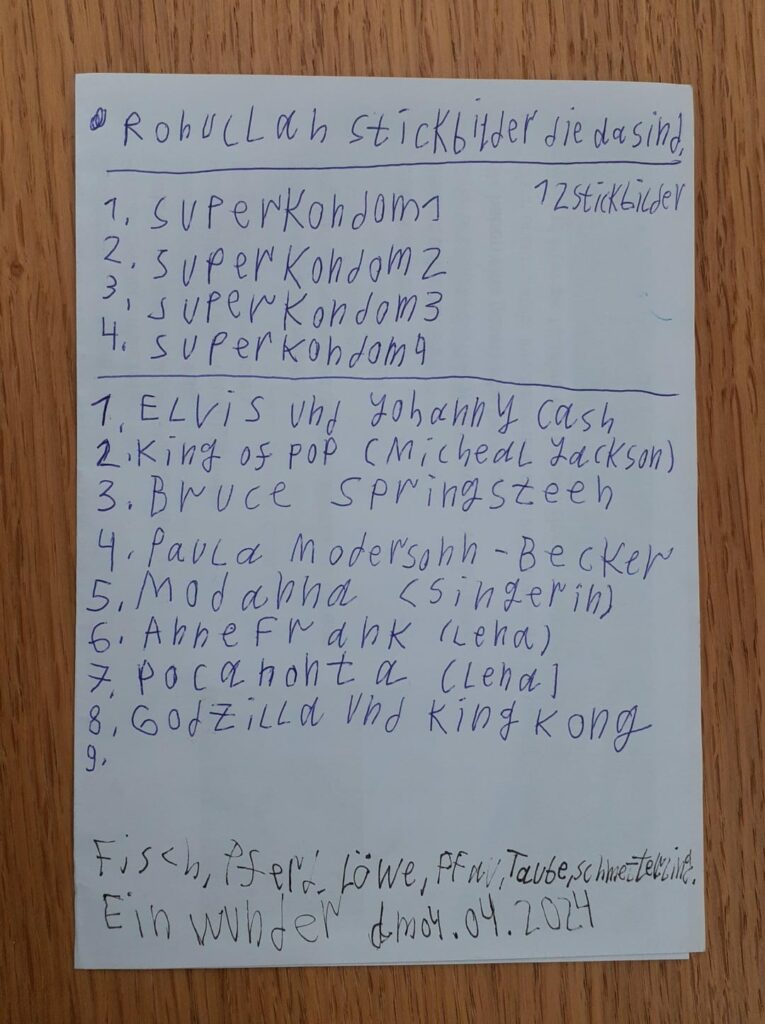 Rohullah Stickbilder die da sind.
12 Stickbilder
1. Superkondom1
2. Superkondom2
3. Superkondom3
4. Superkondom4
1. ELViS und Yohanny Cash
2. King of POP (Micheal Jackson)
3. Bruce Springsteen
4. Paula Modersohn-Becker
5. Modanna (Singerin)
6. Anne Frank (Lena)
7. Pocahonta (Lena)
8. Godzilla und King Kong
9.
Fisch, Pferd. Löwe, Pfau, Taube,
Ein wunder 04.04.2024